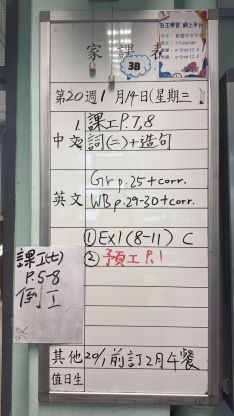 家課表
3B
自主學習 網上平台
第20週 1月14日(星期三
1. 課工P.7,8
中文 詞(二)+造句
Gr p.25+corr.
英文 WB p.29-30+corr.
① Ex1(8-11) C
② 預工P.1
課工(七)
P.5-8
其他 20/1前訂2月午餐
值日生